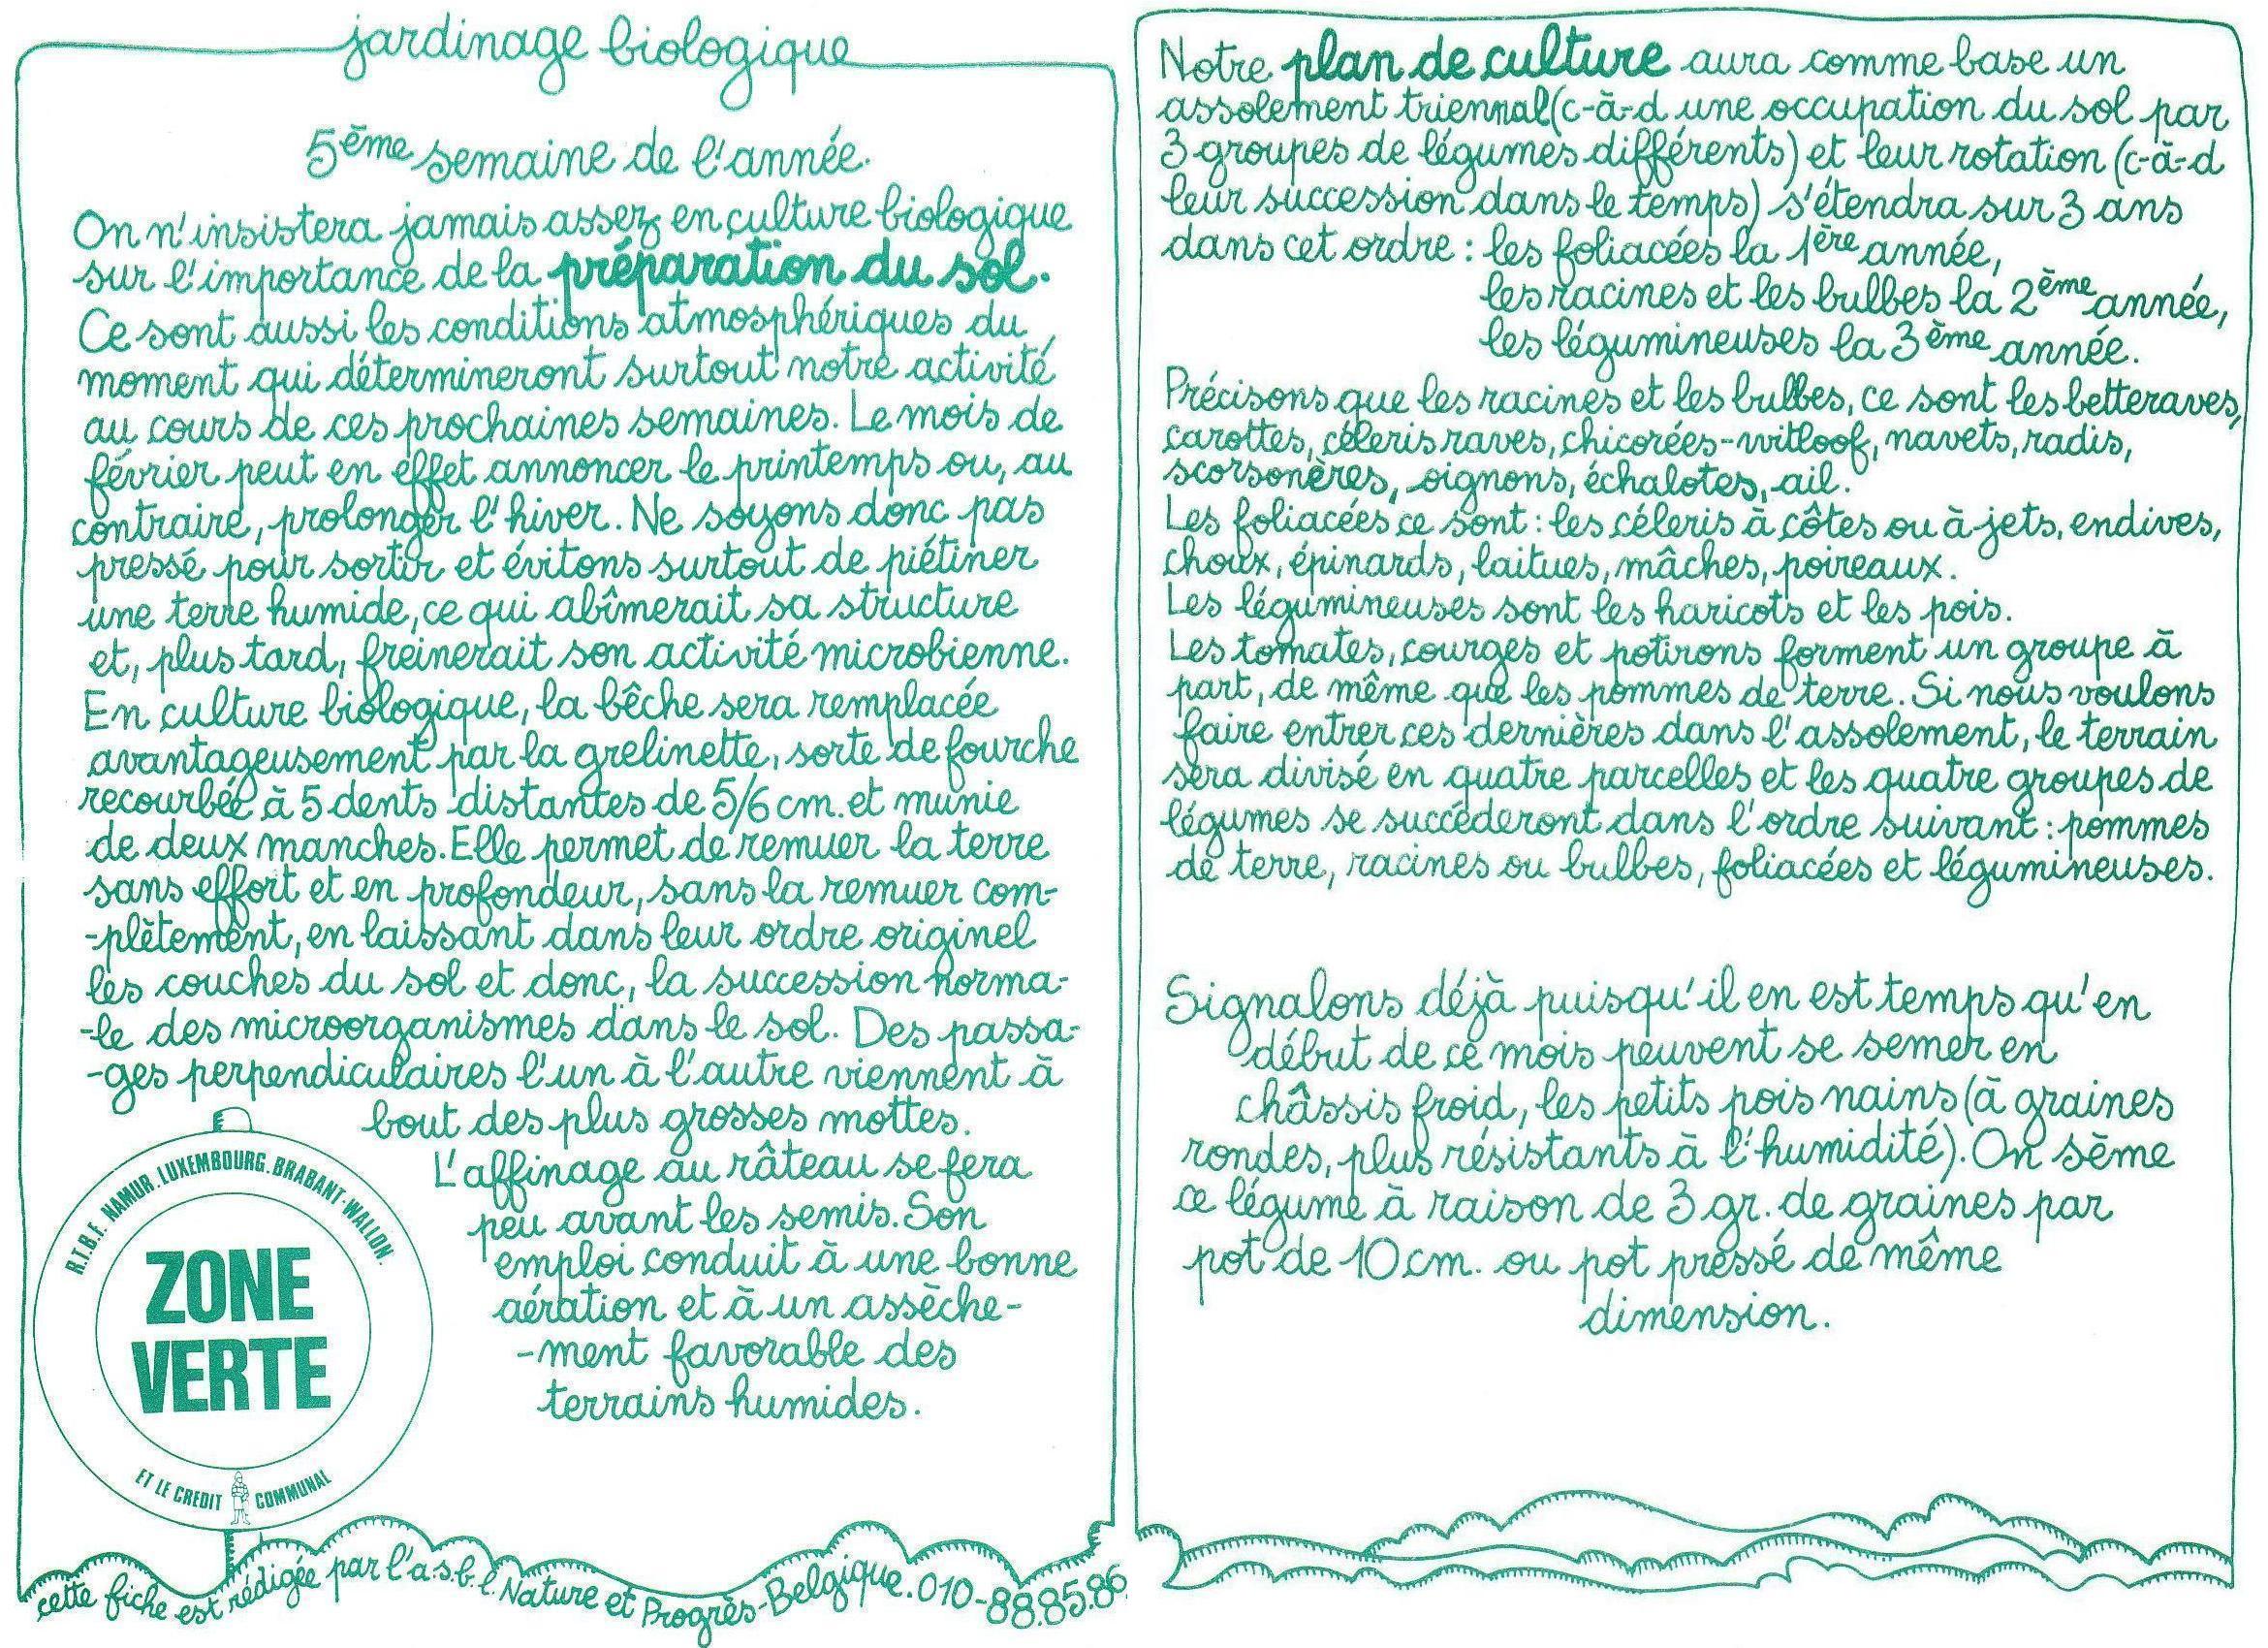 jardinage biologique
5ème semaine de l'année.
On n'insistera jamais assez en culture biologique
sur l'importance de la préparation du sol.
Ce sont aussi les conditions atmosphériques du
moment qui détermineront surtout notre activité
au cours de ces prochaines semaines. Le mois de
février peut en effet annoncer le printemps ou, au
contraire, prolonger l'hiver. Ne soyons donc pas
pressé pour sortir et évitons surtout de piétiner
une terre humide, ce qui abîmerait sa structure
et, plus tard, freinerait son activité microbienne.
En culture biologique, la bêche sera remplacée
avantageusement par la grelinette, sorte de fourche
recourbée à 5 dents distantes de 5/6 cm. et munie
de deux manches. Elle permet de remuer la terre
sans effort et en profondeur, sans la remuer com-
-plètement, en laissant dans leur ordre originel
les couches du sol et donc, la succession norma-
-le des microorganismes dans le sol. Des passa-
-ges perpendiculaires l'un à l'autre viennent à
bout des plus grosses mottes.
L'affinage au râteau se fera
peu avant les semis. Son
emploi conduit à une bonne
aération et à un assèche-
-ment favorable des
terrains humides.
R.T.B.F. NAMUR. LUXEMBOURG. BRABANT-WALLON.
ZONE
VERTE
ET LE CREDIT COMMUNAL
cette fiche est rédigée par l'a.s.b.l. Nature et Progrès-Belgique. 010-88.85.86
Notre plan de culture aura comme base un
assolement triennal (c-à-d une occupation du sol par
3 groupes de légumes différents) et leur rotation (c-à-d
leur succession dans le temps) s'étendra sur 3 ans
dans cet ordre : les foliacées la 1ère année,
les racines et les bulbes la 2ème année,
les légumineuses la 3ème année.
Précisons que les racines et les bulbes, ce sont les betteraves,
carottes, céleris raves, chicorées-witloof, navets, radis,
scorsonères, oignons, échalotes, ail.
Les foliacées ce sont : les céleris à côtes ou à jets, endives,
choux, épinards, laitues, mâches, poireaux.
Les légumineuses sont les haricots et les pois.
Les tomates, courges et potirons forment un groupe à
part, de même que les pommes de terre. Si nous voulons
faire entrer ces dernières dans l'assolement, le terrain
sera divisé en quatre parcelles et les quatre groupes de
légumes se succéderont dans l'ordre suivant : pommes
de terre, racines ou bulbes, foliacées et légumineuses.
Signalons déjà puisqu'il en est temps qu'en
début de ce mois peuvent se semer en
châssis froid, les petits pois nains (à graines
rondes, plus résistants à l'humidité). On sème
ce légume à raison de 3 gr. de graines par
pot de 10 cm. ou pot pressé de même
dimension.